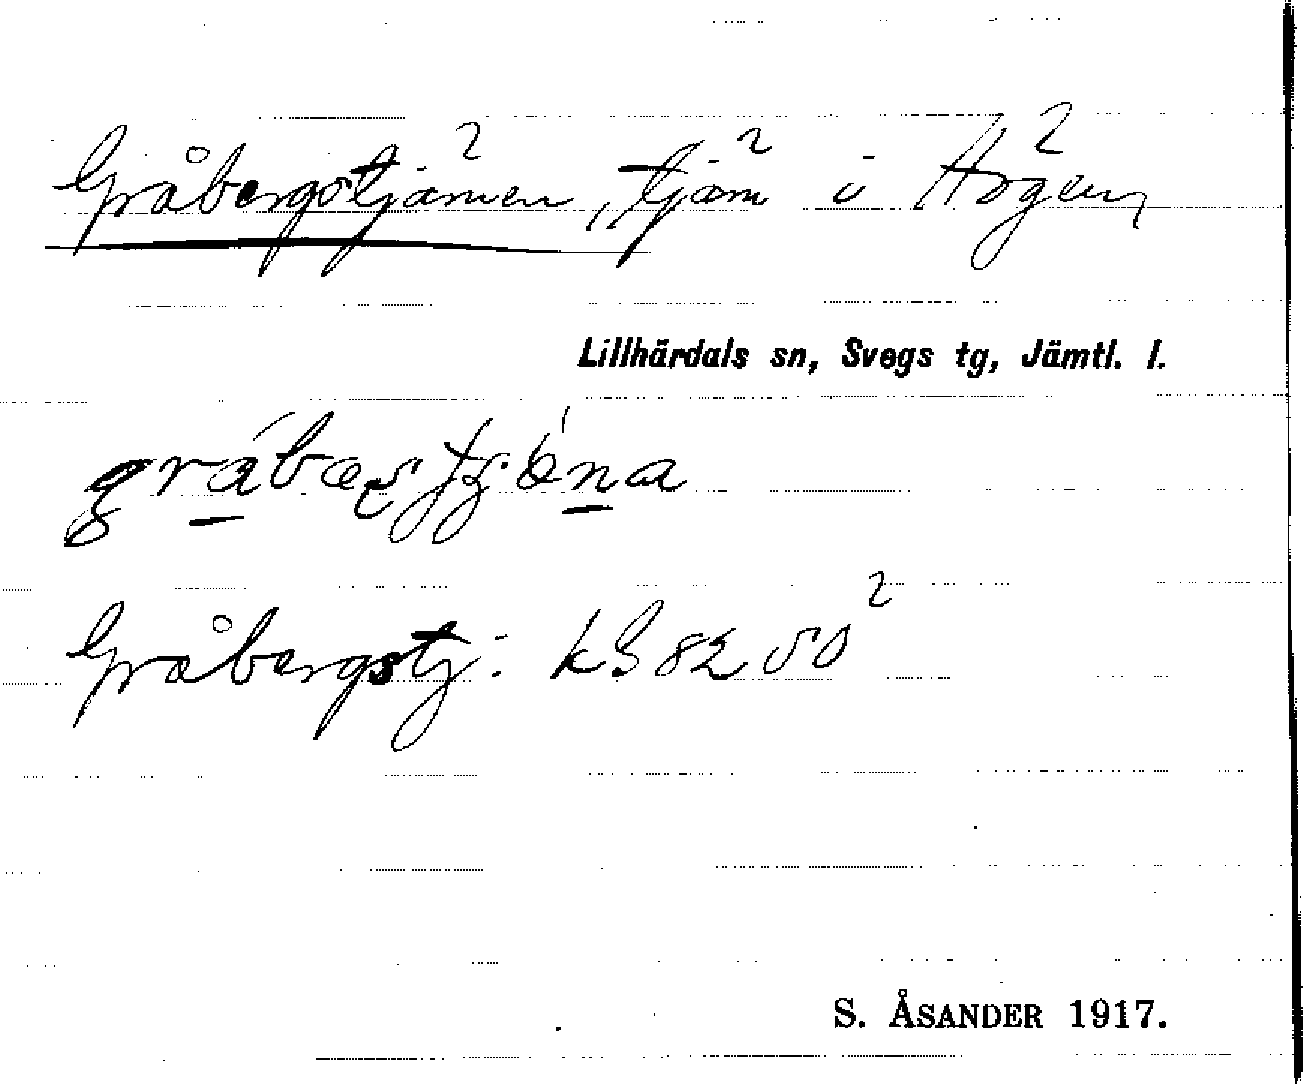 Gråbergstjärnen², tjärn² i Högen²
Lillhärdals sn, Svegs tg, Jämtl. l.
Gråbergstj: kS 82 50²
S. ÅSANDER 1917.